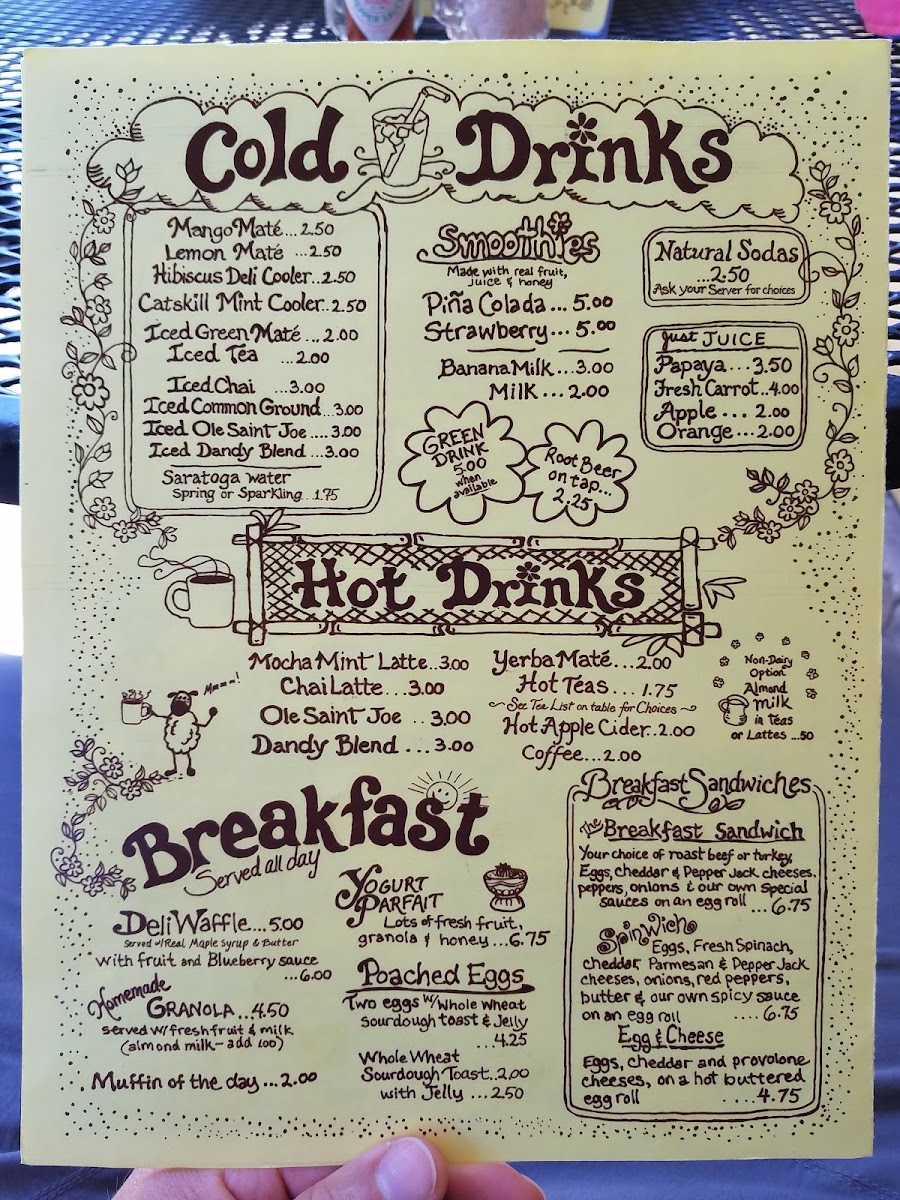 Cold Drinks
Mango Maté...2.50
Lemon Maté ...2.50
Hibiscus Deli Cooler..2.50
Catskill Mint Cooler..2.50
Iced Green Maté...2.00
Iced Tea ...2.00
Iced Chai ...3.00
Iced Common Ground...3.00
Iced Ole Saint Joe....3.00
Iced Dandy Blend...3.00
Saratoga Water
Spring or Sparkling...1.75
Smoothies
Made with real fruit,
juice & honey
Piña Colada...5.00
Strawberry...5.00
Banana Milk...3.00
Milk...2.00
GREEN
DRINK
5.00
when
available
Root Beer
on tap...
2.25
Natural Sodas
...2.50
Ask your Server for choices
Just JUICE
Papaya...3.50
Fresh Carrot..4.00
Apple...2.00
Orange...2.00
Hot Drinks
Mocha Mint Latte..3.00
Chai Latte...3.00
Ole Saint Joe ..3.00
Dandy Blend...3.00
Yerba Maté...2.00
Hot Teas...1.75
See Tea List on table for Choices
Hot Apple Cider..2.00
Coffee...2.00
Non-Dairy
Option
Almond
milk
in teas
or Lattes...50
Mmmm!
Breakfast
Served all day
Deli Waffle...5.00
Served w/Real Maple Syrup & Butter
with fruit and Blueberry sauce
...6.00
Homemade
GRANOLA...4.50
served w/fresh fruit & milk
(almond milk-add 1.00)
Muffin of the day...2.00
YOGURT
PARFAIT
Lots of fresh fruit,
granola & honey...6.75
Poached Eggs
Two eggs w/ whole wheat
sourdough toast & Jelly
...4.25
Whole Wheat
Sourdough Toast..2.00
with Jelly...2.50
Breakfast Sandwiches
The Breakfast Sandwich
Your choice of roast beef or turkey,
Eggs, cheddar & Pepper Jack cheeses.
peppers, onions & our own special
sauces on an egg roll ...6.75
Spinwich
Eggs, Fresh Spinach,
cheddar, Parmesan & Pepper Jack
cheeses, onions, red peppers,
butter & our own spicy sauce
on an egg roll ....6.75
Egg & Cheese
Eggs, cheddar and provolone
cheeses, on a hot buttered
egg roll ....4.75